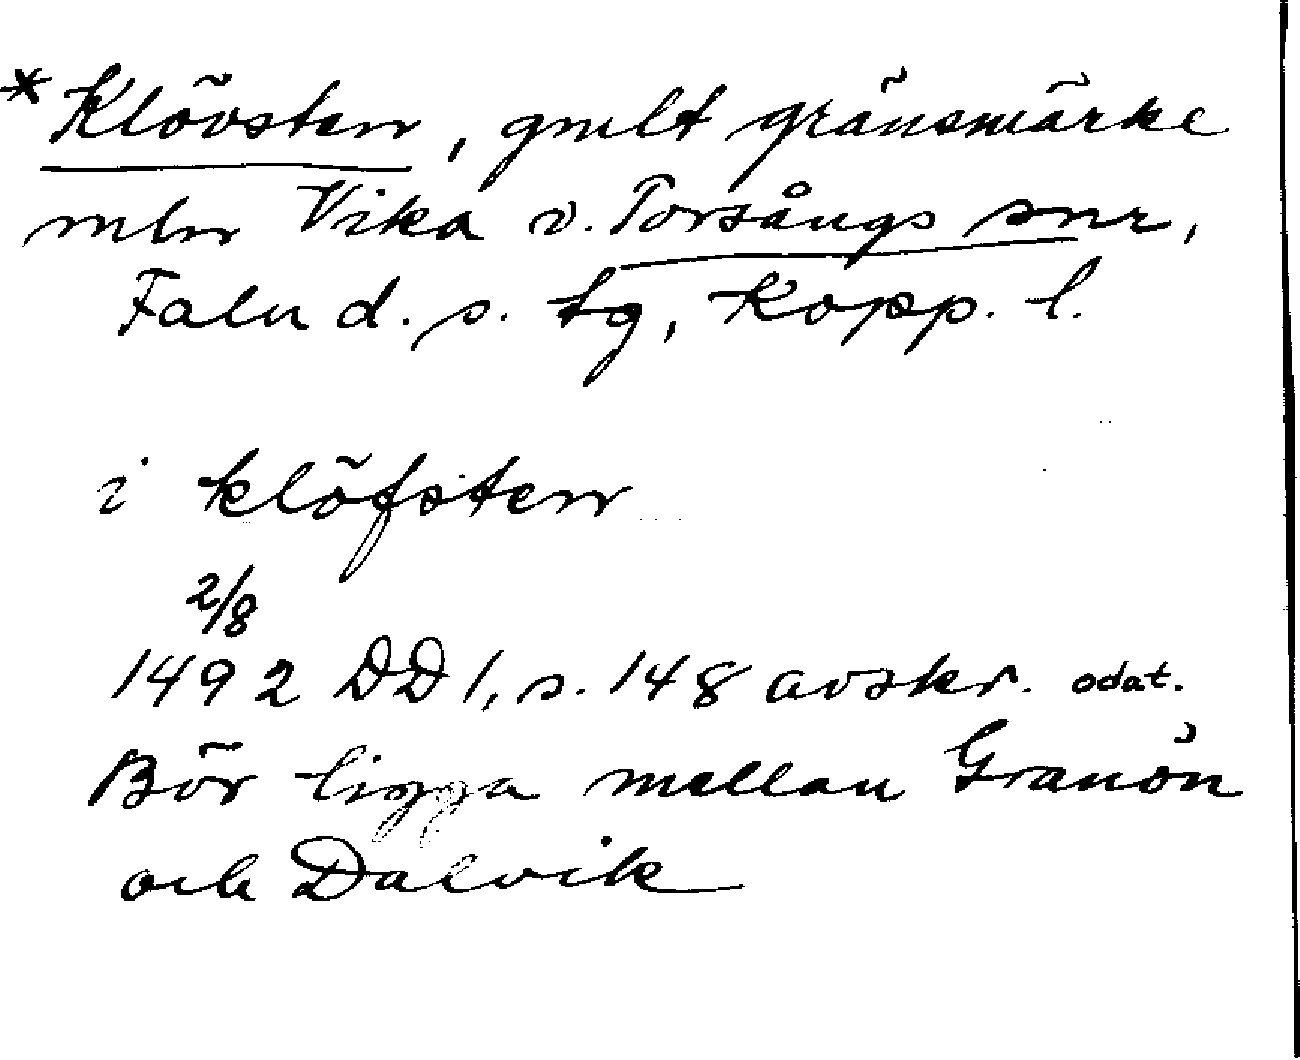 * Klövsten, gmlt gränsmärke
mln Vika o. Torsångs snr,
Falu d. s. tg, Kopp. l.
i klöfsten
2/8
1492 DD 1, s. 148 avskr. odat.
Bör ligga mellan Granön
och Dalvik